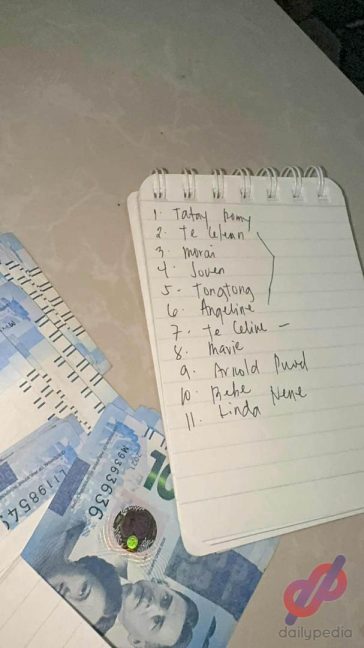 1. Tatay Romy
2. Te
3. Morai
4. Joven
5. Tongtong
6. Angeline
7. Te Celine -
8. Mavie
9. Arnold
10. Bebe Nene
11. Linda
M9363636
10
dailypedia